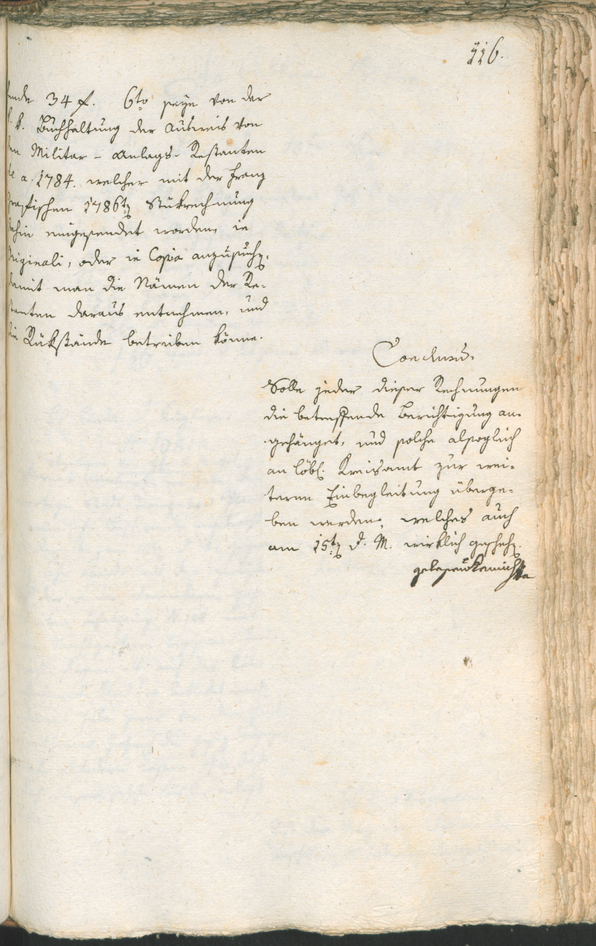 116.
34 f. 6to seye von der
k. Buchhaltung der Ausweis von
Militar-Anlags-Restanten
a. 1784. welcher mit der Haupt
1786ty Stukrechnung
eingesendet worden, in
originali, oder in Copia anzusuchen,
damit man die Nämen der Re-
stanten daraus entnehmen, und
die Rükstände betreiben könne.
Conclusum.
Solle jeder dieser Rechnungen
die betreffende Berichtigung an-
gehänget, und solche alsogleich
an löbl. Kreisamt zur wei-
teren Einbegleitung überge-
ben werden; welches auch
am 15ty d. M. wirklich geschehen.